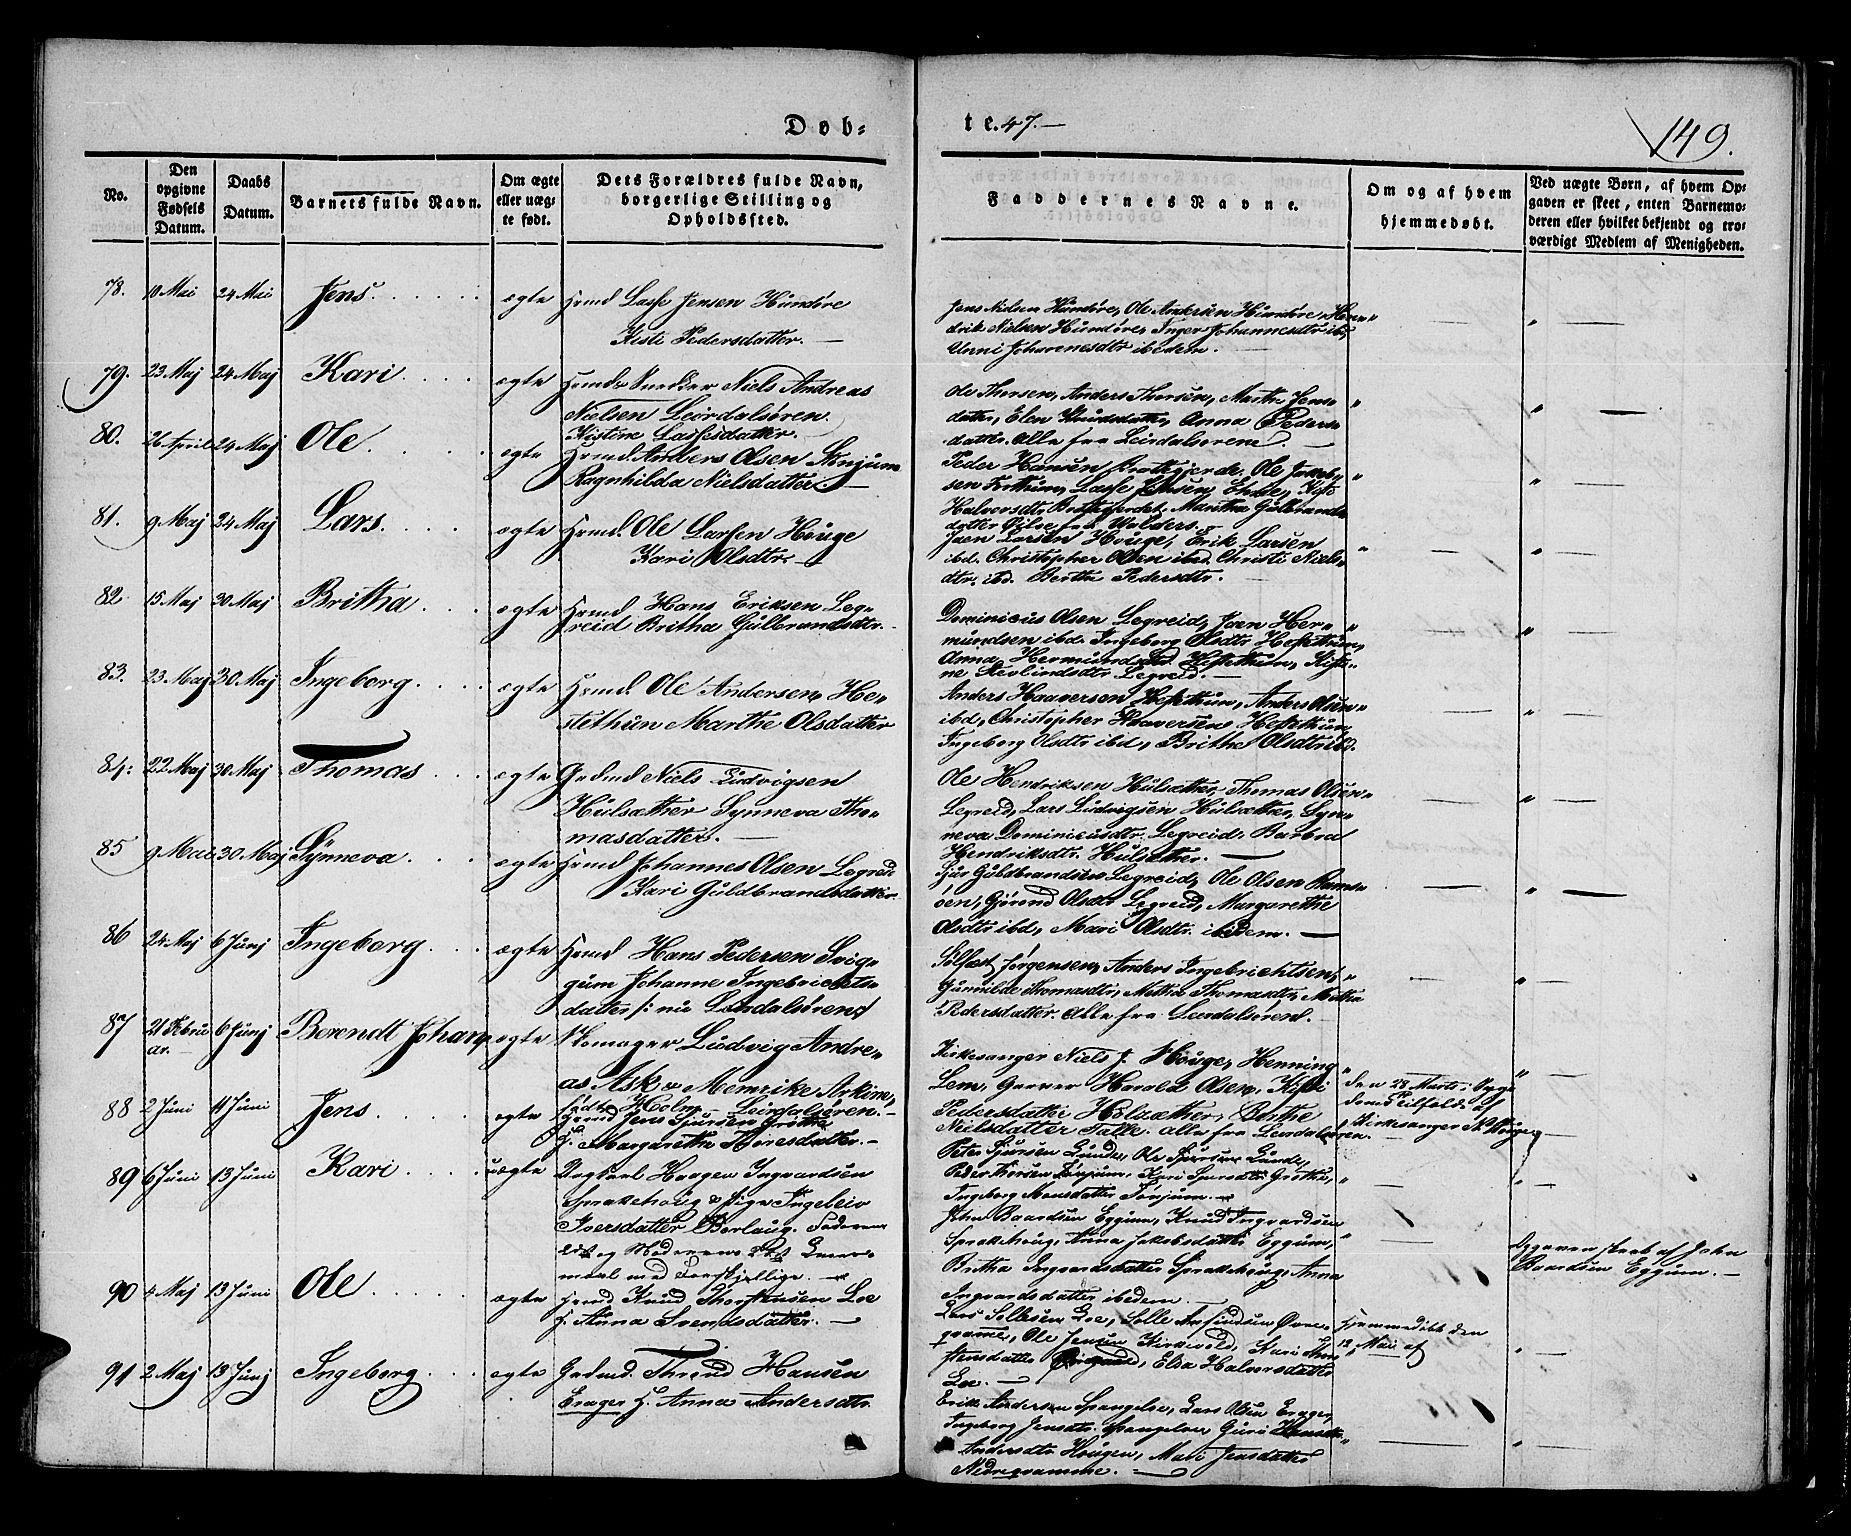 Døb-
te. 47. —
149.
No.
Den opgivne Fødsels Datum.
Daabs Datum.
Barnets fulde Navn.
Om ægte eller uægte født.
Dets Forældres fulde Navn, borgerlige Stilling og Opholdssted.
Faddernes Navne.
Om og af hvem hjemmedøbt.
Ved uægte Børn, af hvem Opgaven er skeet, enten Barnemoderen eller hvilket bekjendt og troværdigt Medlem af Menigheden.
78. 10 Mai 24 Mai Jens. ægte Hmd Lasse Jensen Hundøre
Kisti Pedersdatter. —
Jens Nielsen Hundøre, Ole Andersen Hundøre, Hen-
drik Nielsen Hundøre, Inger Johannesdtr ibd,
Unni Johannesdtr ibedem. —
79. 23 Maj 24 Maj Kari. ægte Snedker Niels Andreas
Nielsen Leirdalsøren.
Kistine Lassesdatter.
Ole Thorsen, Anders Thorsen, Marthe Jens-
datter, Elen Knudsdatter, Anna Peders-
datter. Alle fra Leirdalsøren. —
80. 26 April 24 Maj Ole. ægte Hmd. Anders Olsen Stenjum
Ragnhilda Nielsdatter. —
Peder Hansen Brattegjerde, Ole Jakob-
sen, Lasse, Kisti
Halvorsdtr Brattegjerdet, Martha Gulbrands-
datter fra Valders.
81. 9 Maj 24 Maj Lars. ægte Hmd. Ole Larsen Houge
Kari Olsdtr. —
Jaen Larsen Houge, Erik Larsen
ibd. Christopher Olsen ibd. Christi Niels-
dtr. ibd. Berthe Pedersdtr.
82. 15 Maj 30 Maj Britha. ægte Hmd Hans Eriksen Leg-
reid Britha Gulbrandsdtr.
Dominicus Olsen Legreid, Jaen Her-
mundsen ibd. Ingeborg Olsdtr Hestethun,
Anna Hermundsd. Hestethun, Kisti-
ne Legreid. —
83. 23 Maj 30 Maj Ingeborg. ægte Hmd. Ole Andersen He-
stethun Marthe Olsdatter
Anders Haaversen Hestethun, Anders Olsen
ibd, Christopher Haaversen Hestethun,
Ingeborg Olsdtr ibd, Brithe Olsdtr ibd.
84. 22 Maj 30 Maj Thomas. ægte Grdmd Niels Ludvigsen
Hulsæther Synneva Tho-
masdatter. —
Ole Hendriksen Hulsæther, Thomas Olsen
Legreid, Lars Ludvigsen Hulsæther, Syn-
neva Dominicusdtr. Legreid, Barbra
Hendriksdtr. Hulsæther. —
85 9 Mai 30 Maj Synneva. ægte Hmd Johannes Olsen Legreid
Kari Guldbrandsdatter.
Sjur Guldbrandsen Legreid, Ole Olsen Ram-
øen, Gjørond Olsdtr Legreid, Margrethe
Olsdtr ibd, Mari Olsdtr. ibedem. —
86 24 Maj 6 Junj Ingeborg. ægte Hmd. Hans Pedersen Svig-
gum Johanne Ingebrichts-
datter /: nu Leirdalsøren/
Solfest Jørgensen, Anders Ingebrichtsen,
Gunnilde Thomasdtr, Metha Thomasdtr, Metha
Pedersdatter. Alle fra Leirdalsøren. —
87 21 Februar. 6 Junj Berendt Johan, ægte Skomager Ludvig Andre-
as Ask & Memrike
Holm Leirdalsøren. —
Kirkesanger Niels J. Houge, Henning
Lem, Garver Harald Olsen, Kisti
Pedersdatter Hulsæther, Berthe
Nielsdatter Talle. alle fra Leirdalsøren.
den 28 Marts i Syg-
doms Tilfælde af
Kirkesanger N. Houge
88 2 Juni 11 Juni Jens ægte Hmd Jens Sjursen Grøthe
H. Margaretha Thoresdatter. —
Peter Sjursen Lunde, Ole Sjursen Lunde,
Peder Thorsen Tønjum, Kari Sjursdtr Grøthe,
Ingeborg Monsdatter Tønjum. —
89 6 Juni 13 Juni Kari uægte Ungkarl Haagen Ingvardsen
Sprakehoug & Pige Ingeleiv
Iversdatter Berlaug. Faderens
1ste og Moderens 2det Leier-
maal med Forskjellige. —
John Baardsen Eggum, Knud Ingvardsen
Sprakehoug, Anna Jakobsdatter Eggum,
Britha Ingvardsdatter Sprakehoug, Anna
Ingvardsdatter ibedem. —
Opgaven skeet af John
Baardsen Eggum. —
90 4 Maj 13 Juni Ole ægte Hmd Knud Thorstensen Loe
H. Anna Svendsdatter. —
Lars Sollesen Loe, Solle Amundsen Øvre-
qvamme, Ole Jensen Kirkevold, Kari Thor-
stensdatter, Elsa Halvorsdatter
Loe. —
Hjemmedøbt den
12 Mai af
91 2 Maj 13 Junj Ingeborg. ægte Grdmd. Thrond Hansen
Erager H. Anna Andersdtr.
Erik Andersen Spangelse, Lars Olsen Erager,
Ingeborg Jensdtr. Spangelse, Guri
Andersdtr Hougen, Mari Jensdatter
Nedreqvamme. —